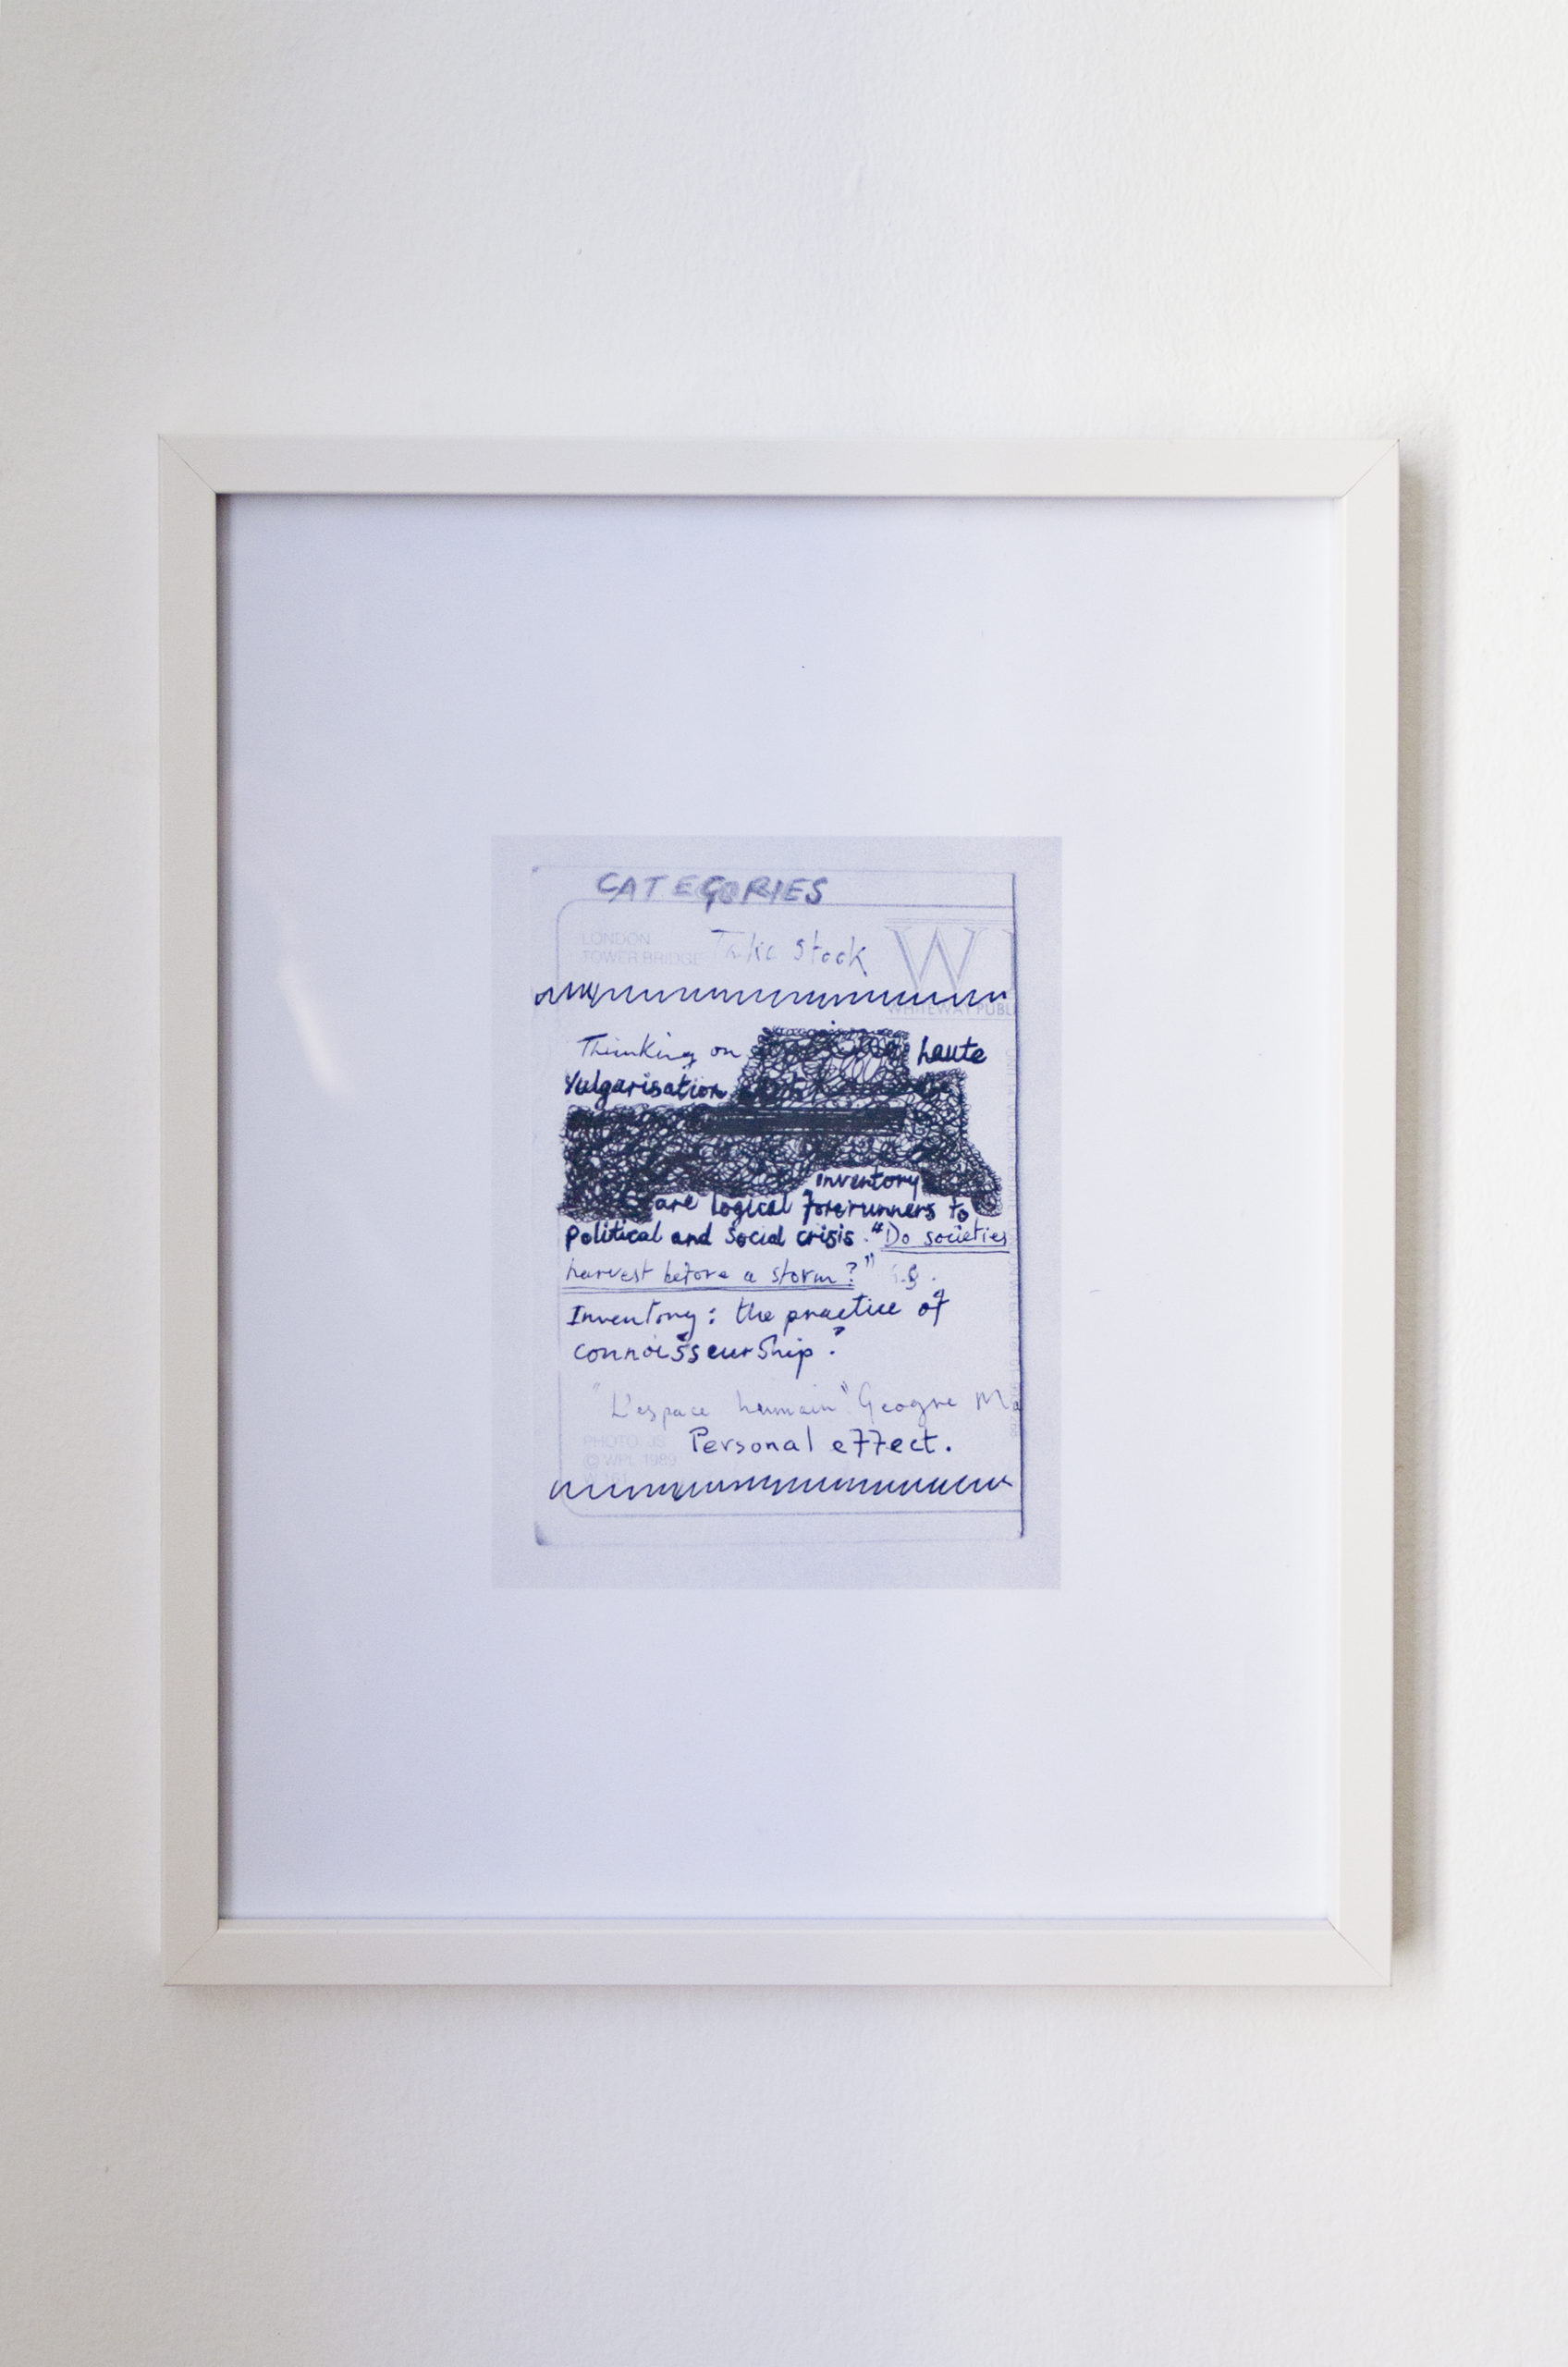 CATEGORIES
LONDON
TOWER BRIDGE
Take Stock
W
WHITEWAY PUBL
Thinking on haute
Vulgarisation
inventory
are logical forerunners to
Political and Social crisis. "Do societies
harvest before a storm?"
Inventory: the practice of
connoisseurship?
"L'espace humain"
Personal effect.
PHOTO: JS
© WPL 1989